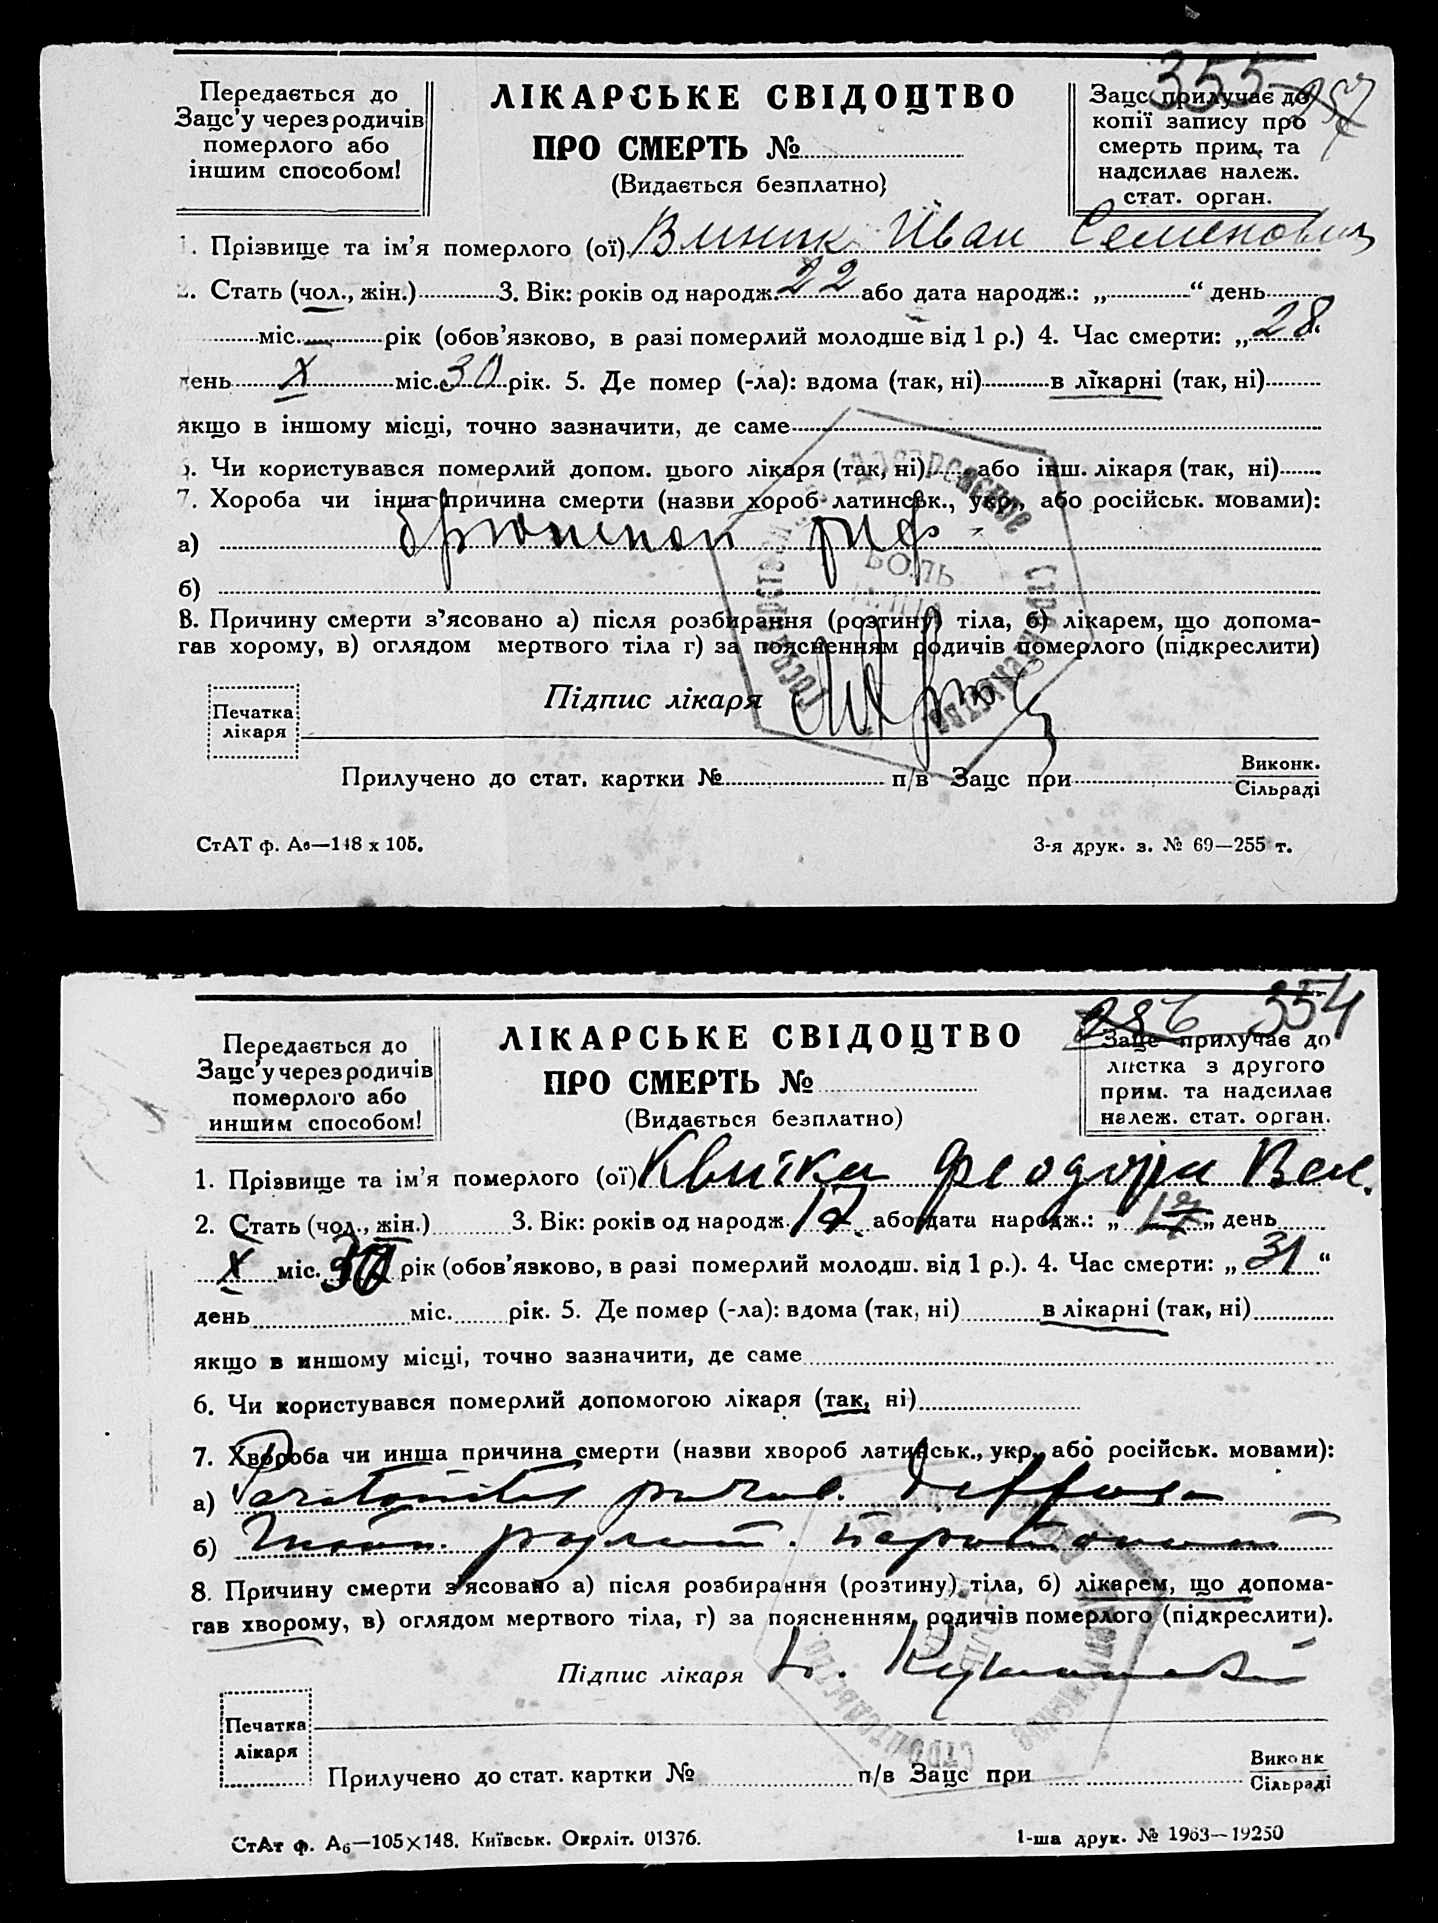 355
Передається до
Зацс'у через родичів
померлого або
іншим способом!
ЛІКАРСЬКЕ СВІДОЦТВО
ПРО СМЕРТЬ №
(Видається безплатно)
Зацс прилучає до
копії запису про
смерть прим. та
надсилає належ.
стат. орган.
1. Прізвище та ім'я померлого (ої) Иван Семенович
2. Стать (чол., жін.) 3. Вік: років од народж. 22 або дата народж.: „ “ день
міс. рік (обов'язково, в разі померлий молодше від 1 р.) 4. Час смерти: „28“
день X міс. 30 рік. 5. Де помер (-ла): вдома (так, ні) в лікарні (так, ні)
якщо в іншому місці, точно зазначити, де саме
6. Чи користувався померлий допом. цього лікаря (так, ні) або інш. лікаря (так, ні)
7. Хороба чи інша причина смерти (назви хороб латинськ., укр. або російськ. мовами):
а) брюшной тиф
б)
8. Причину смерти з'ясовано а) після розбирання (розтину) тіла, б) лікарем, що допома-
гав хорому, в) оглядом мертвого тіла г) за поясненням родичів померлого (підкреслити)
Підпис лікаря
Печатка
лікаря
Прилучено до стат. картки № п/в Зацс при Виконк.
Сільраді
СтАТ ф. А6—148 х 105.
3-я друк. з. № 69—255 т.
286 354
Передається до
Зацс'у через родичів
померлого або
иншим способом!
ЛІКАРСЬКЕ СВІДОЦТВО
ПРО СМЕРТЬ №
(Видається безплатно)
Зацс прилучає до
листка з другого
прим. та надсилає
належ. стат. орган.
1. Прізвище та ім'я померлого (ої) Квитка Феодора Вас.
2. Стать (чол., жін.) 3. Вік: років од народж. 17 або дата народж.: „ „ день
X міс. 30 рік (обов'язково, в разі померлий молодш. від 1 р.). 4. Час смерти: „31“
день міс. рік. 5. Де помер (-ла): вдома (так, ні) в лікарні (так, ні)
якщо в иншому місці, точно зазначити, де саме
6. Чи користувався померлий допомогою лікаря (так, ні)
7. Хвороба чи инша причина смерти (назви хвороб латинськ., укр. або російськ. мовами):
а) Peritonitis purul. diffusa
б)
8. Причину смерти з'ясовано а) після розбирання (розтину) тіла, б) лікарем, що допома-
гав хворому, в) оглядом мертвого тіла, г) за поясненням родичів померлого (підкреслити).
Підпис лікаря
Печатка
лікаря
Прилучено до стат. картки № п/в Зацс при Виконк
Сільраді
СтАт ф. А6—105×148. Київськ. Окрліт. 01376.
1-ша друк. № 1963—19250